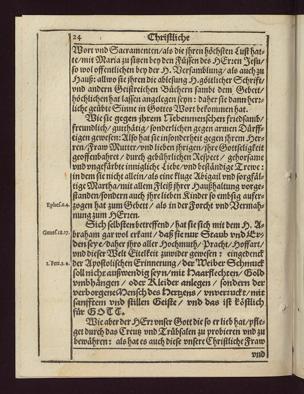 24 Christliche
Wort vnd Sacramenten/als die ihren höchsten Lust hat-
te/mit Maria zu sitzen bey den Füssen des HErren Jesu/
so wol offentlichen bey der H. Versamblung/als auch zu
Hauß: allwo sie ihren die ablesung H. göttlicher Schrifft/
vnd andern Geistreichen Büchern sambt dem Gebett/
höchlichen hat lassen angelegen seyn: daher sie dann herr-
liche geübte Sinne in Gottes Wort bekommen hat.
Wie sie gegen ihrem Nebenmenschen friedsamb/
freundlich/gutthätig/sonderlichen gegen armen Dürff-
tigen gewesen: Also hat sie insonderheit gegen ihrem Her-
ren/Fraw Mutter/vnd lieben ihrigen/ihre Gottseligkeit
geoffenbahret/durch gebührlichen Respect/gehorsame
vnd vngefärbte innigliche Liebe/vnd beständige Trewe:
in dem sie nicht allein/als eine kluge Abigail vnd sorgfäl-
tige Martha/mit allem Fleiß ihrer Haußhaltung vorge-
standen/sondern auch ihre lieben Kinder so embsig aufer-
Ephes. 6. 4. zogen hat zum Gebett/als in der Forcht vnd Vermah-
nung zum HErren.
Sich selbsten betreffend/hat sie sich mit dem H. A-
Genes. 18. 27. braham gar wol erkant/daß sie nur Staub vnd Ey-
den seye/daher ihro aller Hochmuth/Pracht/Hoffart/
vnd dieser Welt Eitelkeit zuwider gewesen: eingedenck
1. Petr. 3. 4. der Apostolischen Erinnerung/der Weiber Schmuck
soll nicht außwendig seyn/mit Haarflechten/Gold
vmbhängen/oder Kleider anlegen/sondern der
verborgene Mensch des Hertzens/vnverruckt/mit
sanfftem vnd stillen Geiste/vnd das ist köstlich
für GOTT.
Wie aber der HErr vnser Gott die so er lieb hat/pfle-
get durch das Creutz vnd Trübsalen zu probieren vnd zu
bewähren: als hat es auch diese vnsere Christliche Fraw
vnd